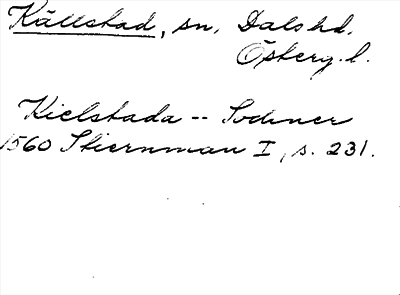 Källstad, sn, Dals hd.
Österg. l.
Kielstada -- Sochner
1560 Stiernman I, s. 231.